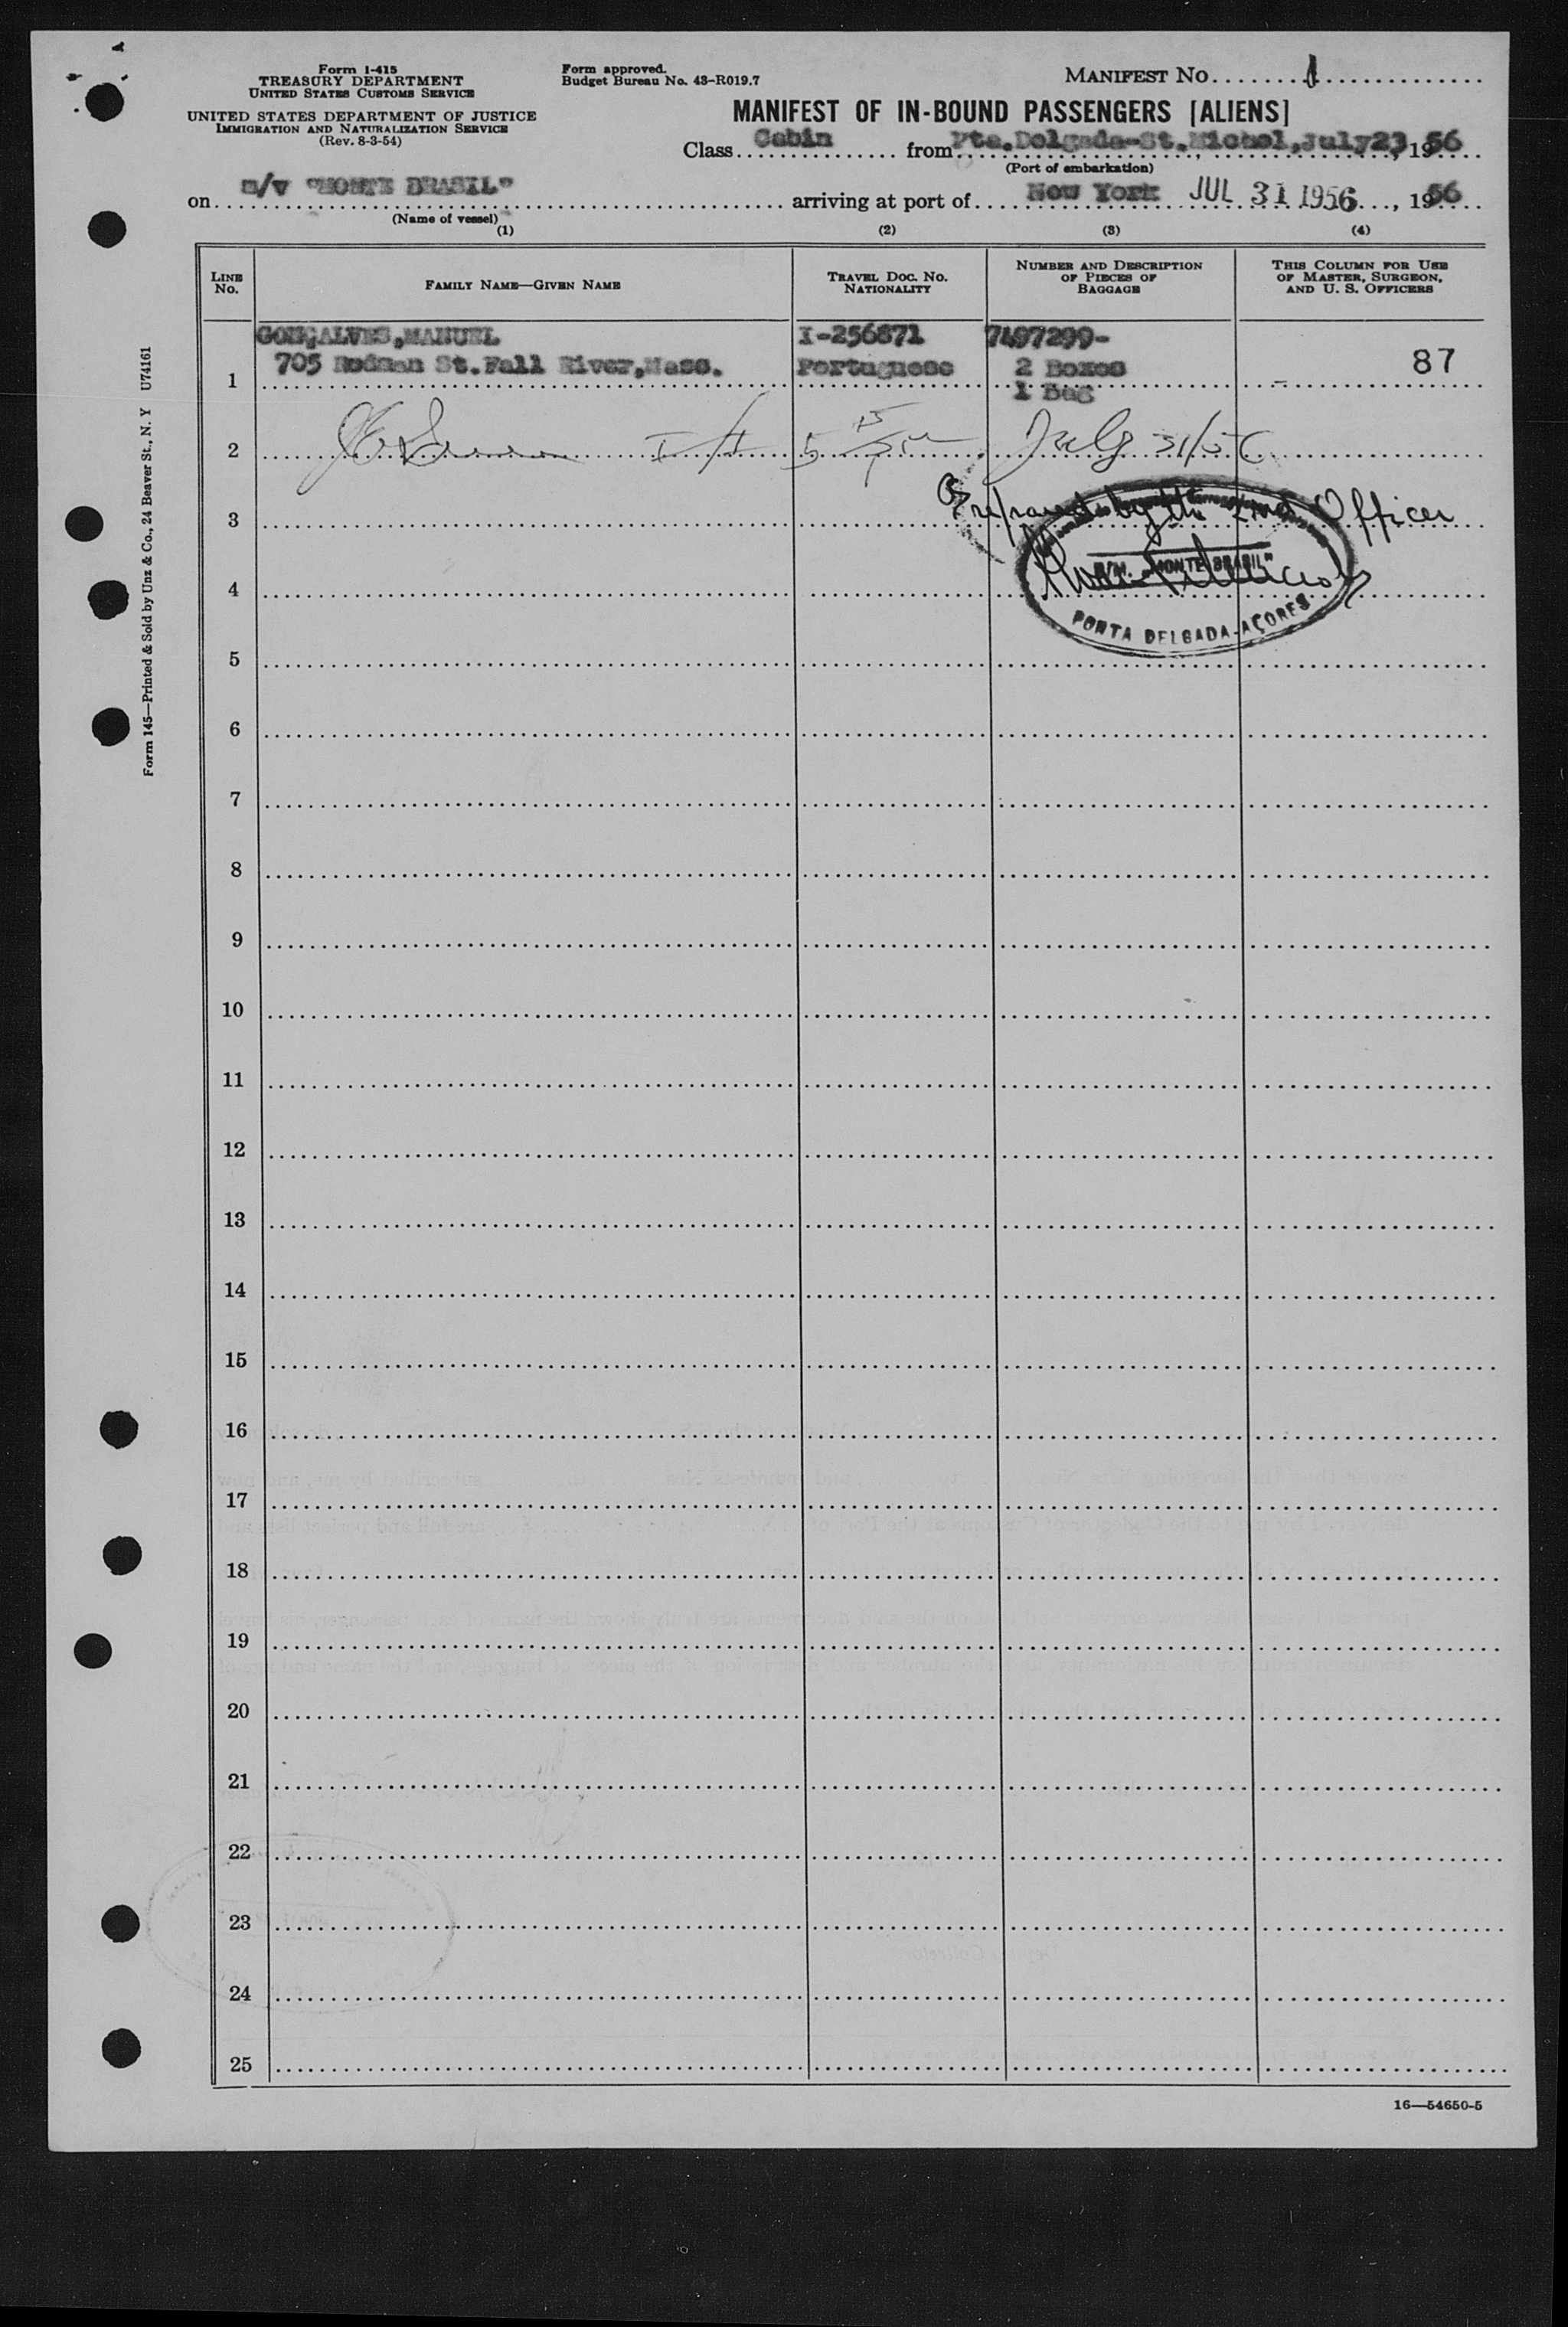 Form I-415
TREASURY DEPARTMENT
UNITED STATES CUSTOMS SERVICE
UNITED STATES DEPARTMENT OF JUSTICE
IMMIGRATION AND NATURALIZATION SERVICE
(Rev. 8-3-54)
Form approved.
Budget Bureau No. 43-R019.7
MANIFEST NO. 1
MANIFEST OF IN-BOUND PASSENGERS [ALIENS]
Class Cabin from Pta.Delgada-St.Michel, July 23, 1956
(Port of embarkation)
on m/v "MONTE BRASIL" arriving at port of New York JUL 31 1956, 1956
(Name of vessel)
(1) (2) (3) (4)
LINE NO. FAMILY NAME—GIVEN NAME TRAVEL DOC. NO. NATIONALITY NUMBER AND DESCRIPTION OF PIECES OF BAGGAGE THIS COLUMN FOR USE OF MASTER, SURGEON, AND U. S. OFFICERS
GONÇALVES, MANUEL I-256871 7497299-
1 705 Rodman St. Fall River, Mass. Portuguese 2 Boxes 87
1 Bag
2 July 31/56
3 Prepared by the 2nd Officer
4 N/M. "MONTE BRASIL"
PONTA DELGADA-AÇORES
5
6
7
8
9
10
11
12
13
14
15
16
17
18
19
20
21
22
23
24
25
16—54650-5
Form 145—Printed & Sold by Unz & Co., 24 Beaver St., N. Y U74161